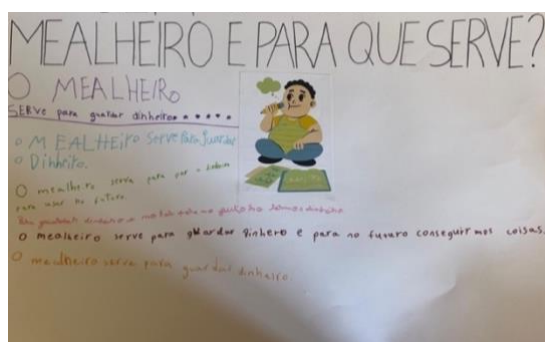 MEALHEIRO E PARA QUE SERVE?
O MEALHEIRO
SERVE para guardar dinheiro.
O MEALHEIRO Serve Para Guardar
Dinheiro.
O mealheiro serve para por o
para usar no futuro.
O mealheiro serve para guardar dinhero e para no futuro conseguirmos coisas.
O mealheiro serve para guardar dinheiro.